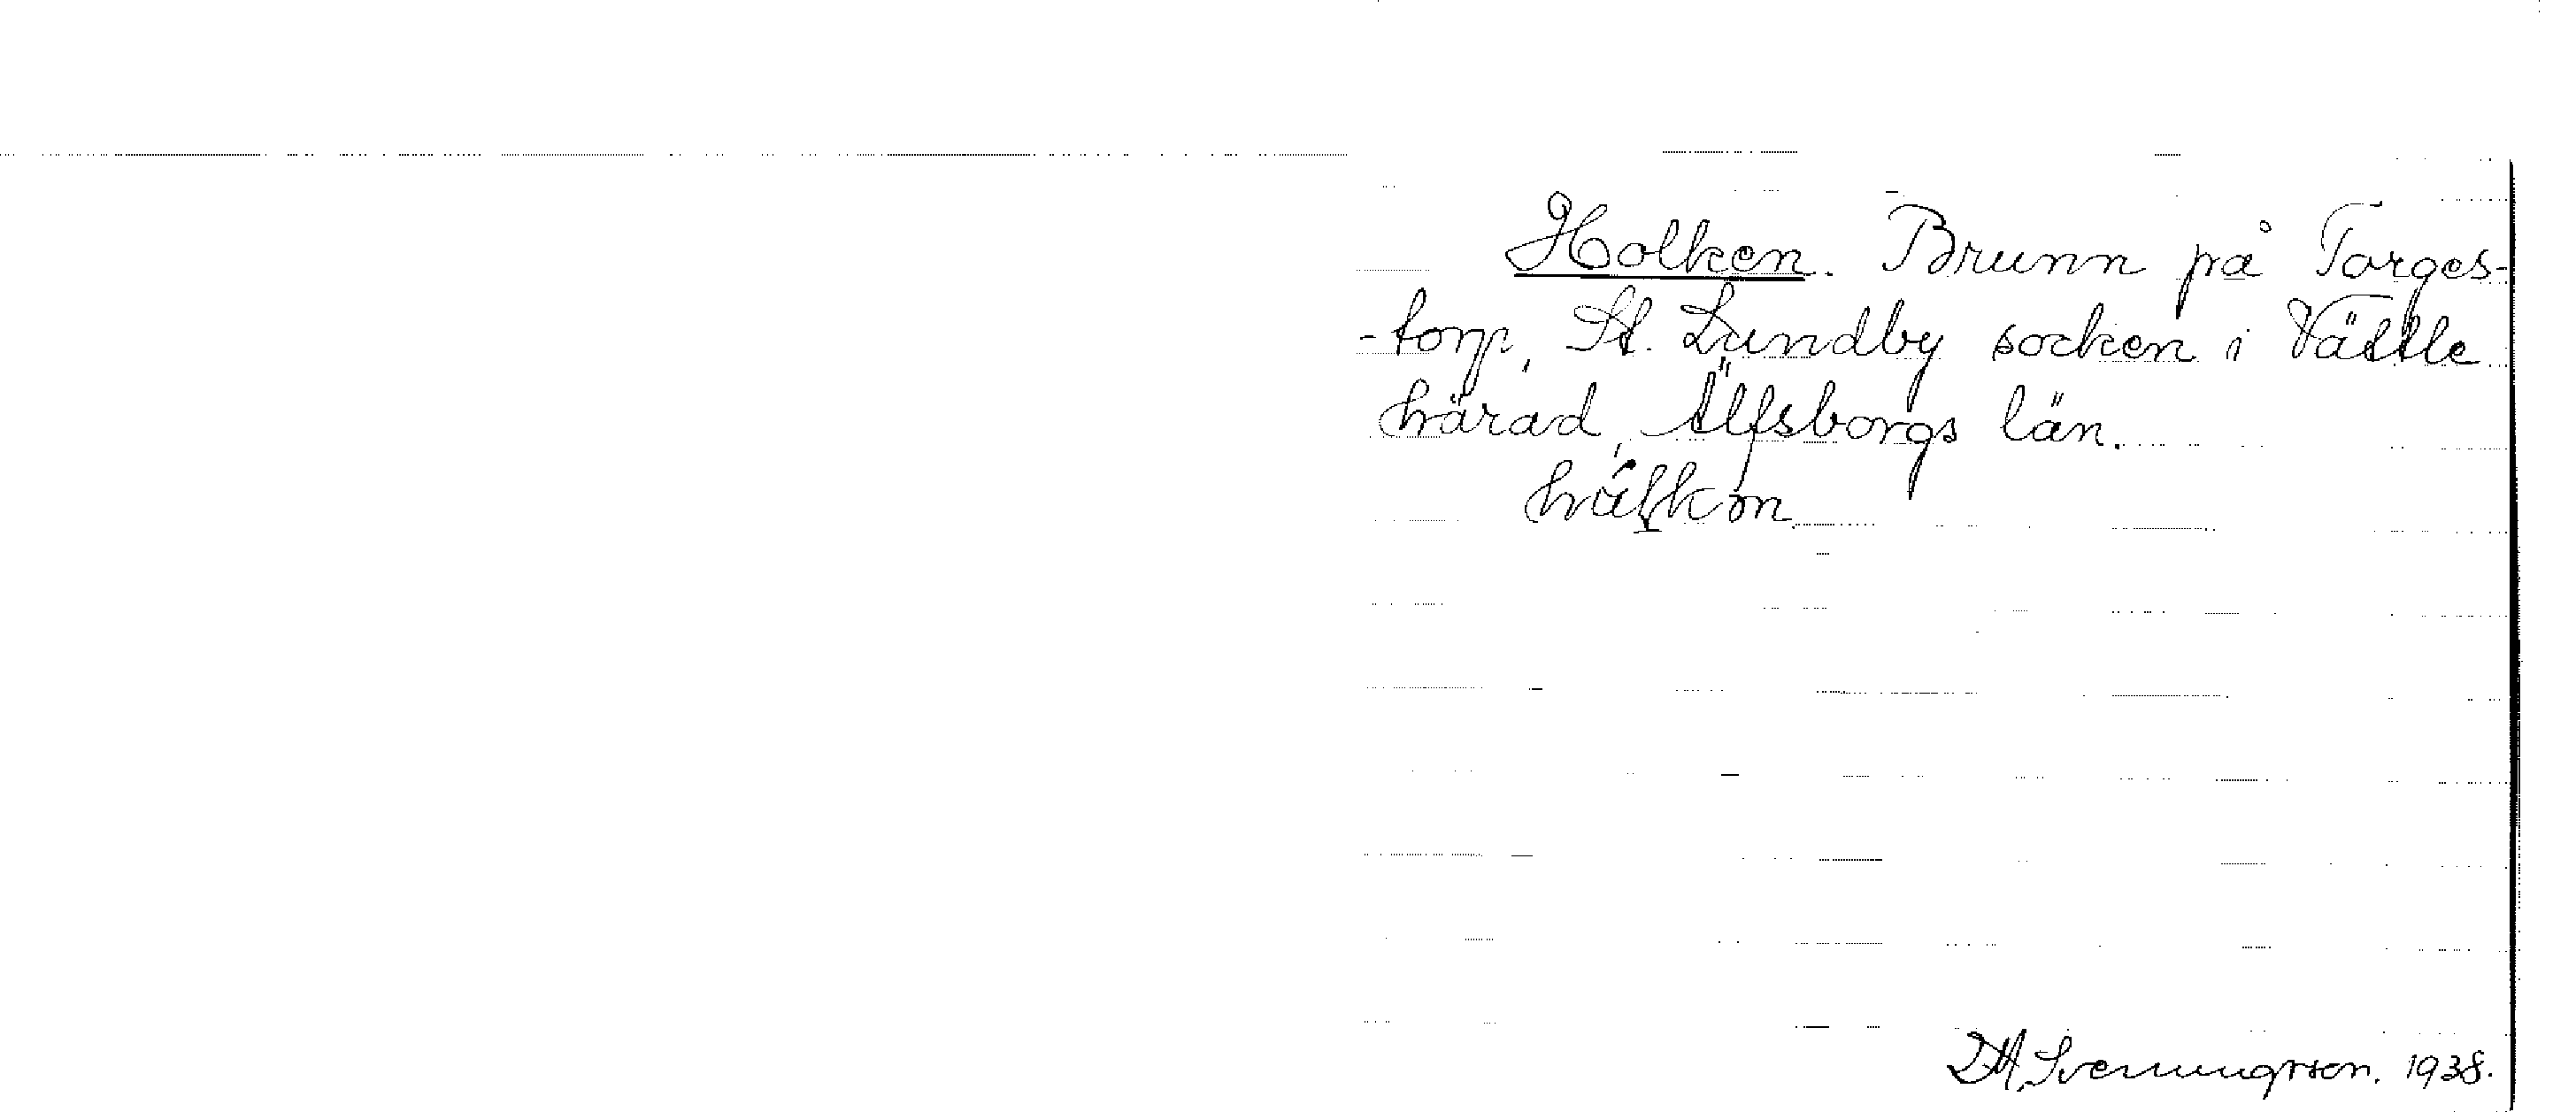 Holken. Brunn på Torges-
-torp, St. Lundby socken i Vättle
härad, Älfsborgs län.
D.A. Svenungsson. 1938.